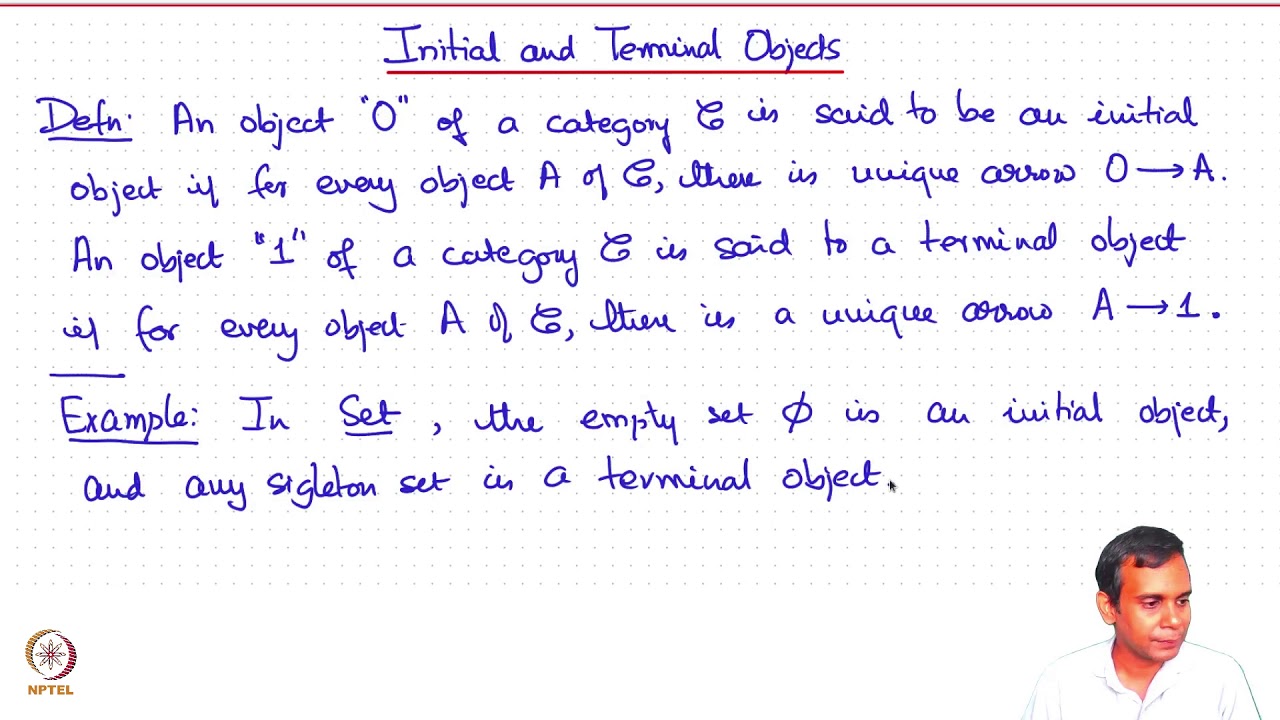 Initial and Terminal Objects
Defn: An object "0" of a category C is said to be an initial
object if for every object A of C, there is unique arrow 0 → A.
An object "1" of a category C is said to a terminal object
if for every object A of C, there is a unique arrow A → 1.
Example: In Set, the empty set φ is an initial object,
and any sigleton set is a terminal object.
NPTEL